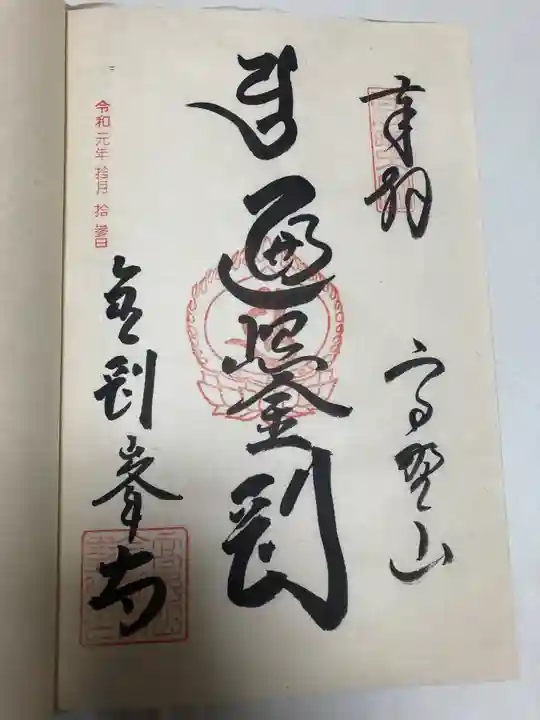 奉拝
高野山
遍照金剛
金剛峯寺
令和元年拾月拾参日